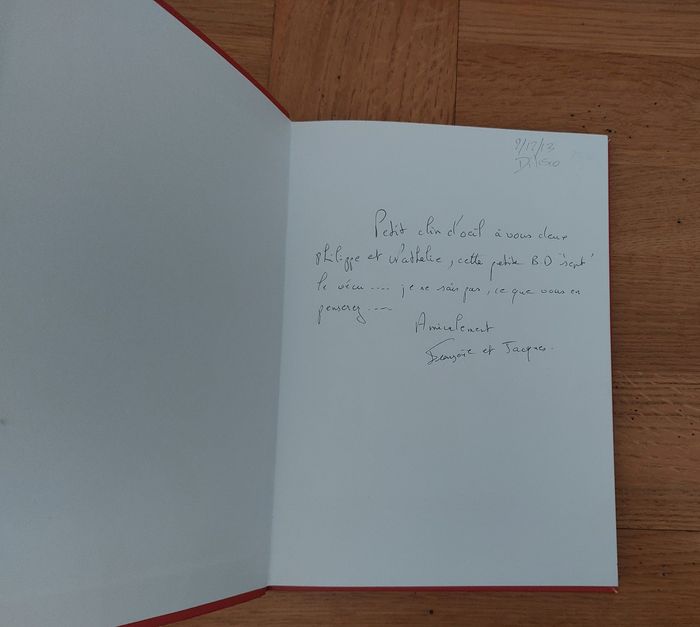 9/12/13
Petit clin d'oeil à vous deux
philippe et Nathalie, cette petite BD "sent"
le vécu .... je ne sais pas, ce que vous en
penserez ....
Amicalement
Françoise et Jacques.